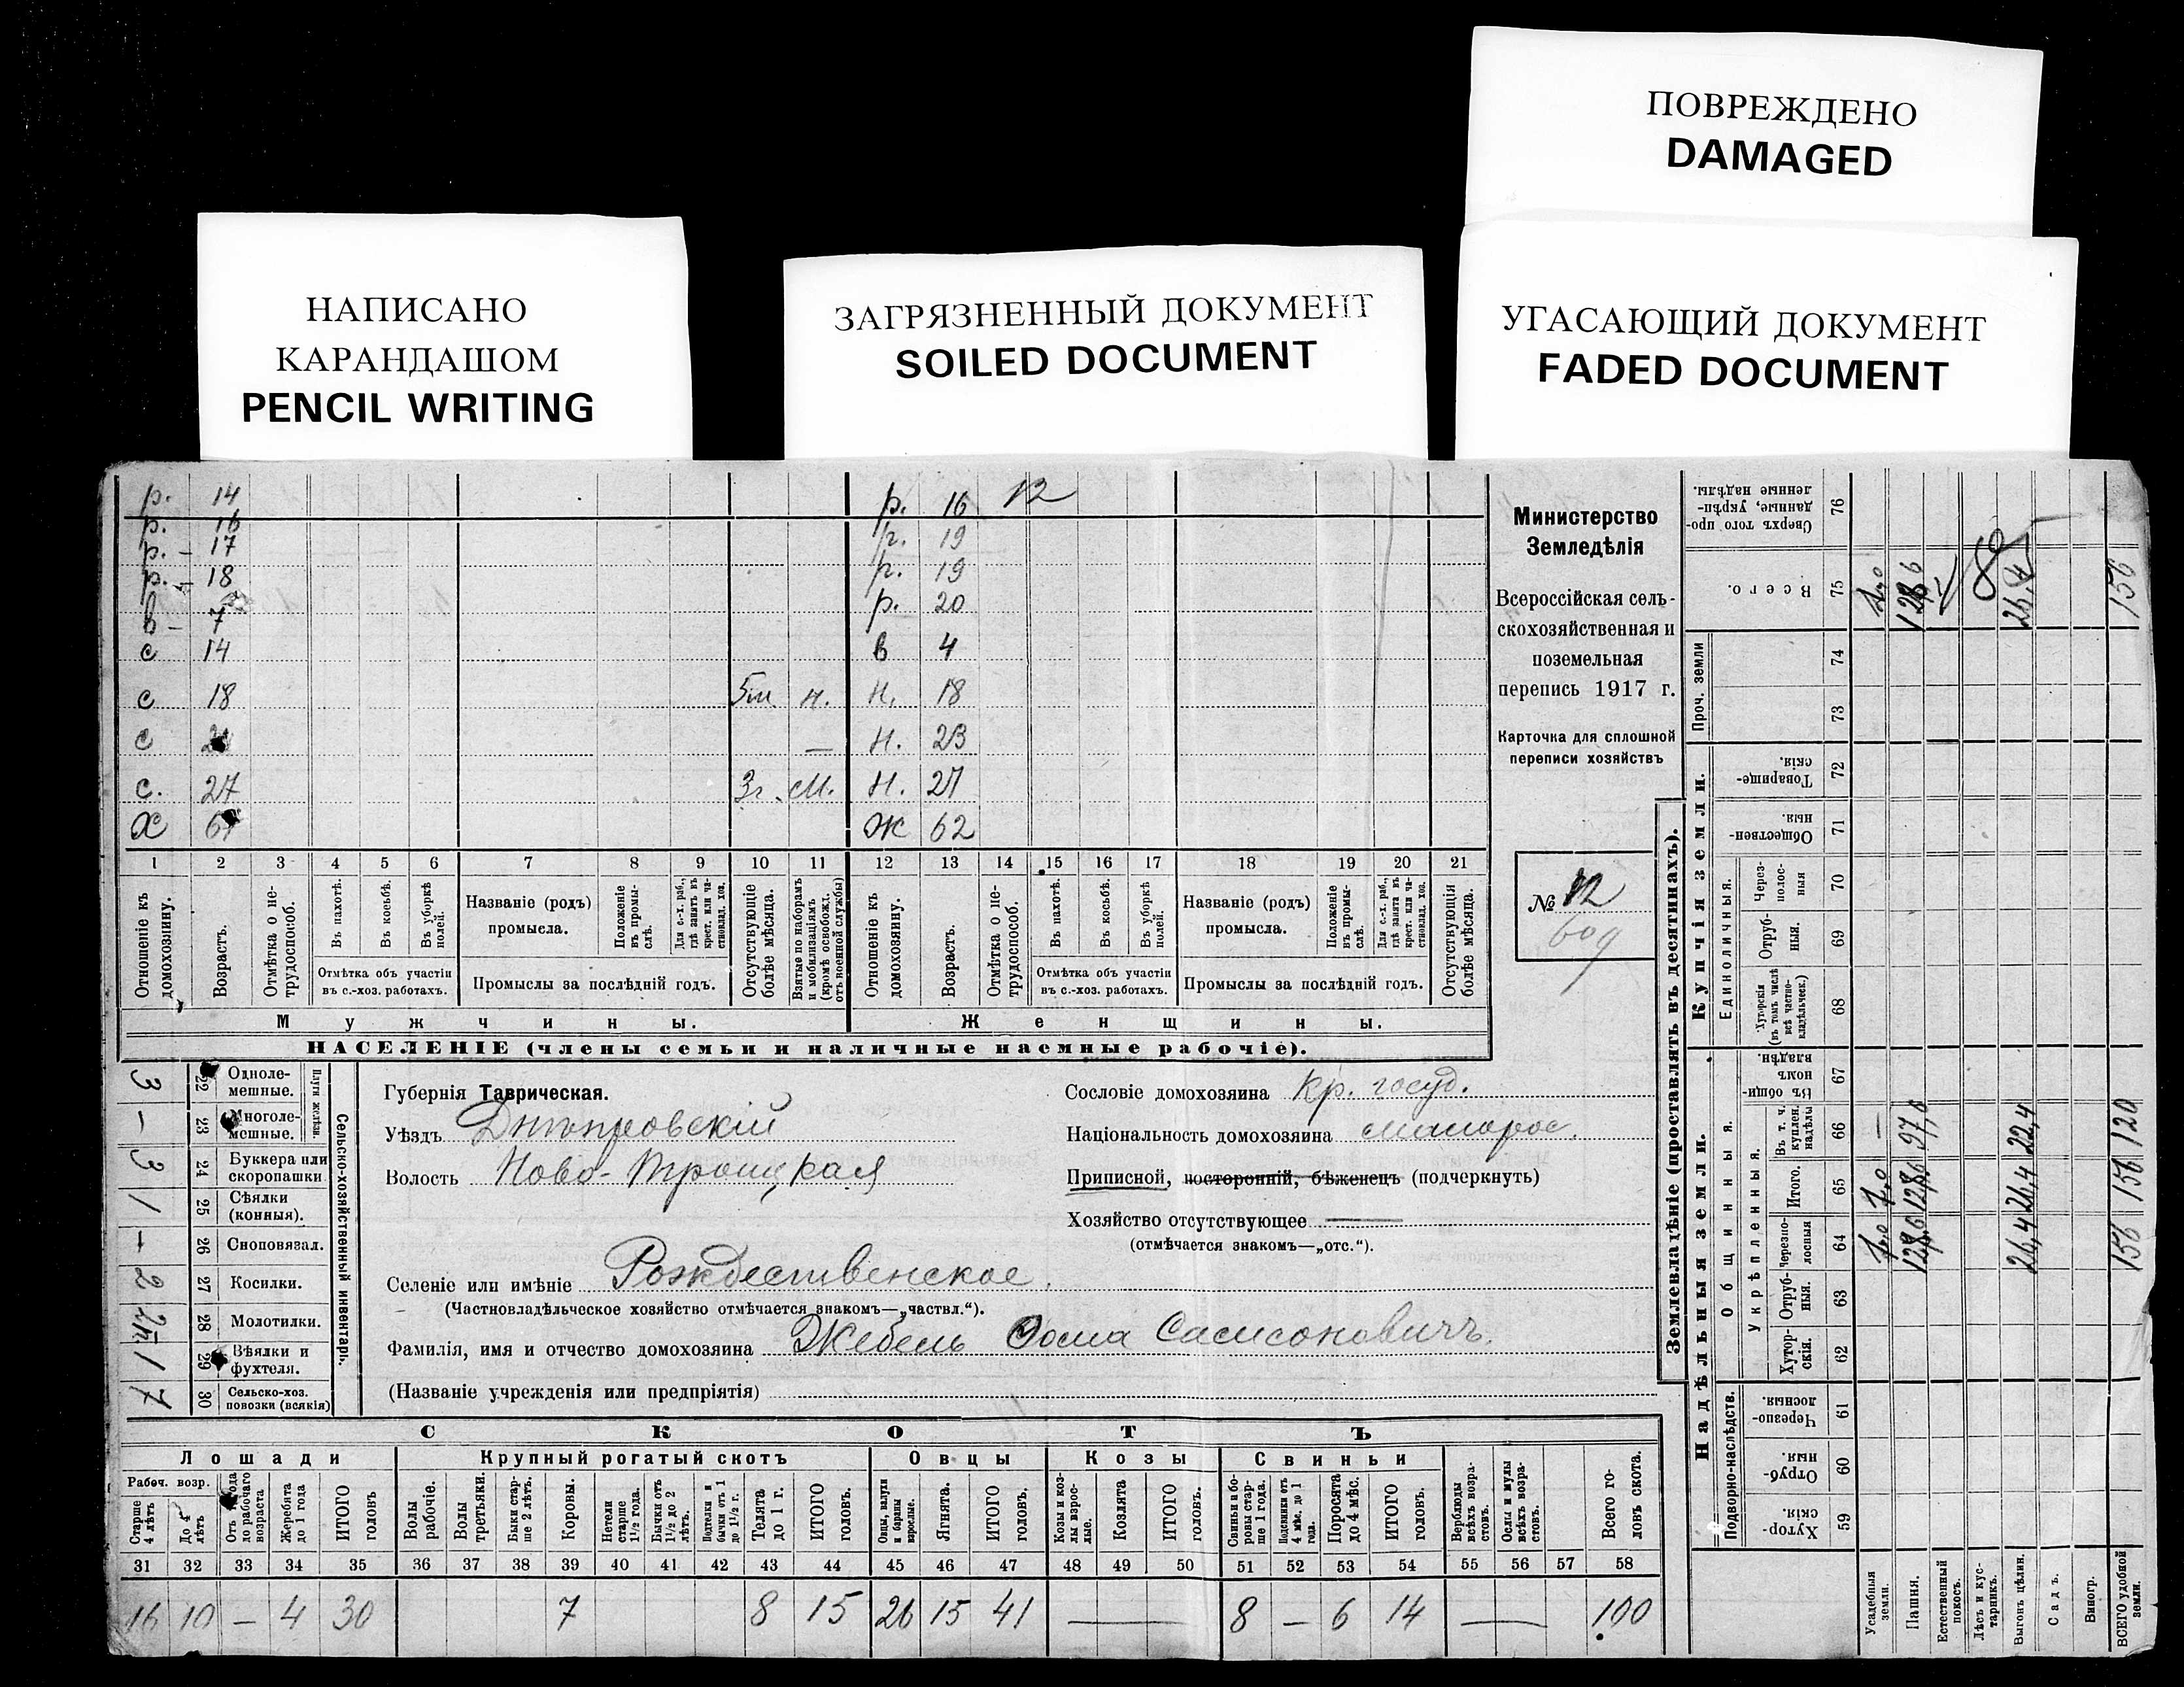 ПОВРЕЖДЕНО
DAMAGED
НАПИСАНО
КАРАНДАШОМ
PENCIL WRITING
ЗАГРЯЗНЕННЫЙ ДОКУМЕНТ
SOILED DOCUMENT
УГАСАЮЩИЙ ДОКУМЕНТ
FADED DOCUMENT
р. 14 р. 16 12
р. 16 р. 19
р. – 17 р. 19
р. – 18 р. 20
в – 7 в 4
с 14
с 18 н. Н. 18
с — Н. 23
с. 27 3г. М. Н. 27
Х Ж 62
1 2 3 4 5 6 7 8 9 10 11 12 13 14 15 16 17 18 19 20 21
Отношеніе къ домохозяину.
Возрастъ.
Отмѣтка о не-трудоспособ.
Въ пахотѣ.
Въ косьбѣ.
Въ уборкѣ полей.
Отмѣтка объ участіи въ с.-хоз. работахъ.
Названіе (родъ) промысла.
Положеніе въ промы-слѣ.
Для с.-х. раб., гдѣ занятъ въ крест. или ча-стновлад. хоз.
Промыслы за послѣдній годъ.
Отсутствующіе болѣе мѣсяца.
Взятые по наборамъ и мобилизаціямъ (кромѣ освобожд. отъ военной службы)
Отношеніе къ домохозяину.
Возрастъ.
Отмѣтка о не-трудоспособ.
Въ пахотѣ.
Въ косьбѣ.
Въ уборкѣ полей.
Отмѣтка объ участіи въ с.-хоз. работахъ.
Названіе (родъ) промысла.
Положеніе въ промы-слѣ.
Для с.-х. раб., гдѣ занята въ крест. или ча-стновлад. хоз.
Промыслы за послѣдній годъ.
Отсутствующія болѣе мѣсяца.
Мужчины. Женщины.
НАСЕЛЕНІЕ (члены семьи и наличные наемные рабочіе).
Министерство
Земледѣлія
Всероссійская сель-
скохозяйственная и
поземельная
перепись 1917 г.
Карточка для сплошной
переписи хозяйствъ
№ 12
609
3 22 Одноле-мешные.
– 23 Многоле-мешные.
Плуги желѣзн.
3 24 Буккера или скоропашки
1 25 Сѣялки (конныя).
– 26 Сноповязал.
2 27 Косилки.
28 Молотилки.
1 29 Вѣялки и фухтеля.
7 30 Сельско-хоз. повозки (всякія)
Сельско-хозяйственный инвентарь.
Губернія Таврическая.
Уѣздъ Днѣпровскій
Волость Ново-Троицкая
Селеніе или имѣніе Рождественское.
(Частновладѣльческое хозяйство отмѣчается знакомъ—„частвл.“).
Фамилія, имя и отчество домохозяина Жебель Фома Самсоновичъ.
(Названіе учрежденія или предпріятія)
Сословіе домохозяина Кр. госуд.
Національность домохозяина малорос.
Приписной, посторонній, бѣженецъ (подчеркнуть)
Хозяйство отсутствующее —
(отмѣчается знакомъ—„отс.“).
СКОТЪ
Лошади Крупный рогатый скотъ Овцы Козы Свиньи
Рабоч. возр.
Старше 4 лѣтъ
До 4 лѣтъ
Отъ 1 года до рабочаго возраста
Жеребята до 1 года
ИТОГО головъ
Волы рабочіе.
Волы третьяки.
Быки стар-ше 2 лѣтъ.
Коровы.
Нетели старше 1½ года.
Бычки отъ 1½ до 2 лѣтъ.
Подтелки и бычки отъ 1 до 1½ г.
Телята до 1 г.
ИТОГО головъ.
Овцы, валухи и бараны взрослые.
Ягнята.
ИТОГО головъ.
Козы и коз-лы взрос-лые.
Козлята
ИТОГО головъ.
Свиньи и бо-ровы стар-ше 1 года.
Подсвинки отъ 4 мѣс. до 1 года.
Поросята до 4 мѣс.
ИТОГО головъ.
Верблюды всѣхъ возра-стовъ.
Ослы и мулы всѣхъ возра-стовъ.
Всего го-ловъ скота.
31 32 33 34 35 36 37 38 39 40 41 42 43 44 45 46 47 48 49 50 51 52 53 54 55 56 57 58
16 10 — 4 30 7 8 15 26 15 41 — 8 – 6 14 — 100
Землевладѣніе (проставлять въ десятинахъ).
Надѣльныя земли. Купчія земли. Проч. земли
Подворно-наслѣдств.
Общинныя.
Укрѣпленныя.
Единоличныя.
59 Хутор-скія.
60 Отруб-ныя.
61 Черезпо-лосныя.
62 Хутор-скія.
63 Отруб-ныя.
64 Черезпо-лосныя
65 Итого.
66 Въ т. ч. куплен. надѣлы
67 Въ общин-номъ владѣн.
68 Хуторскія (въ томъ числѣ всѣ частно-владѣльческ.)
69 Отруб-ныя.
70 Через-полос-ныя
71 Обществен-ныя.
72 Товарище-скія.
73
74
75 Всего.
76 Сверхъ того про-данные, укрѣп-ленные надѣлы.
Усадебныя земли.
Пашня. 128,6 128,6 97,6 128,6
Естественный покосъ.
Лѣсъ и кус-тарникъ.
Выгонъ цѣлин. 26,4 26,4 22,4 26,4
Садъ.
Виногр.
ВСЕГО удобной земли. 156 156 120 156